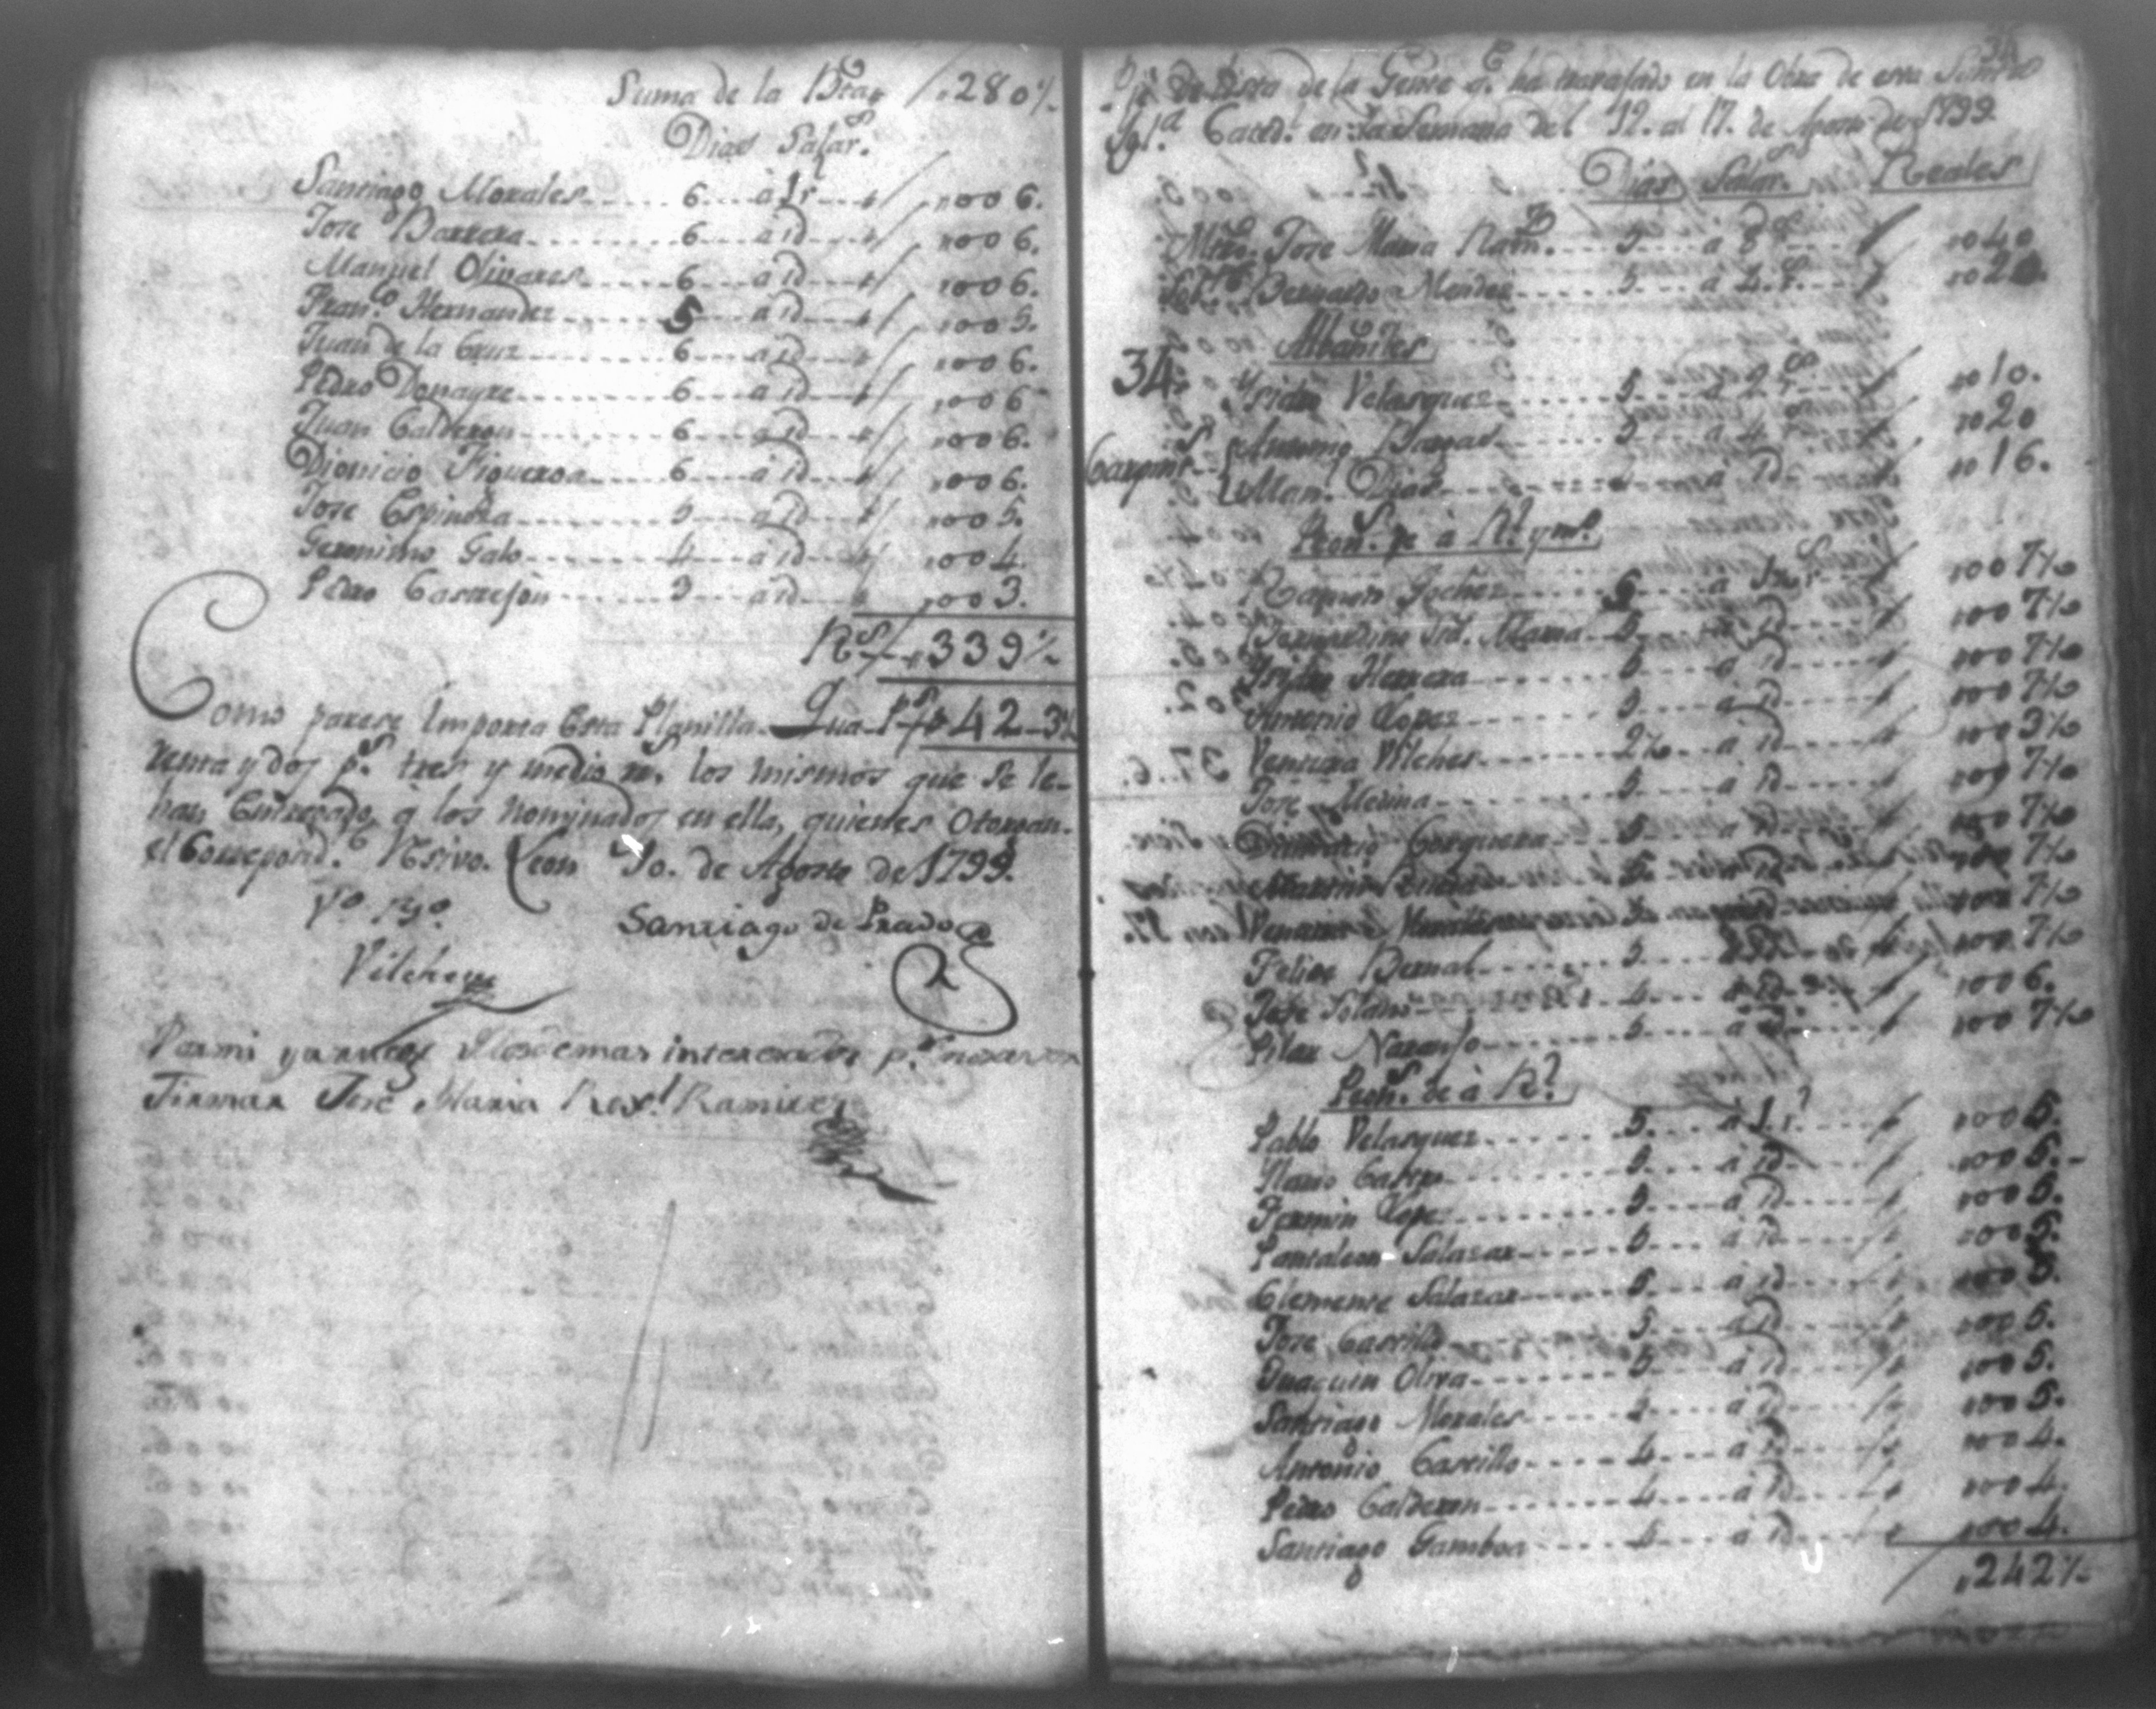 Suma de la Bta. 280½
Dias Salar.s
Santiago Morales 6 à 1r 006.
Jose Barrera 6 à id 006.
Manuel Olivares 6 à id 006.
Fran.co Hernandez 5 à id 005.
Juan de la Cruz 6 à id 006.
Pedro Donayre 6 à id 006
Juan Calderon 6 à id 006.
Dionicio Figueroa 6 à id 006.
Jose Espinosa 5 à id 005.
Geronimo Galo 4 à id 004.
Pedro Castrejon 3 à id 003.
R.s 339½
Como parese Importa Esta Planilla Qua- P.s 42-3½
renta y dos p.s tres y medio rs. los mismos que se le-
han Entregado à los nominados en ella, quienes Otorgan
el Correspond.te Resivo. Leon 10. de Agosto de 1799.
Vo Bo
Santiago de Prado
Vilches
Por mi y a rruego de los demas interezados p.r no saver
Firmar Jose Maria Ramirez
34
Lista de la Gente q.e ha travajado en la Obra de esta Santa
Ygl.a Cated.l en la Semana del 12. al 17. de Agosto de 1799
Dias Salar.s Reales
Mtro. Jose Maria Ram.z 5 à 8 r.s 040
Bernardo Mendez 5 à 4 r.s 020.
Albañiles
34
Ysidro Velasquez 5 à 2 r.s 010.
Carpint.s Antonio 5 à 4 020
Man.l Dias 4 à id 016.
Peon.s de à R.l y m.o
Ramon Gochez 5 à 1½ r 007½
Bernardino Maria 5 à id 007½
Ysidro Herrera 5 à id 007½
Antonio Lopez 5 à id 007½
Ventura Vilches 2½ à id 003½
Jose Medina 5 à id 007½
Dionicio 5 à id 007½
5 à id 007½
007½
Felipe Bernal 5 007½
Jose Solano 4 à id 006.
Pilar Naranjo 5 à id 007½
Peon.s de à R.l
Pablo Velasquez 5. à 1 r.l 005.
Castro 5 à id 005.
Fermin Lopez 5 à id 005.
Pantaleon Salazar 5 à id 005.
Clemente Salazar 5. à id 005.
Jose Carrillo 5. à id 005.
Juaquin Oliva 5 à id 005.
Santiago Morales 5 à id 005.
Antonio Castillo 4 à id 004.
Pedro Calderon 4 à id 004.
Santiago Gamboa 4 à id 004.
242½